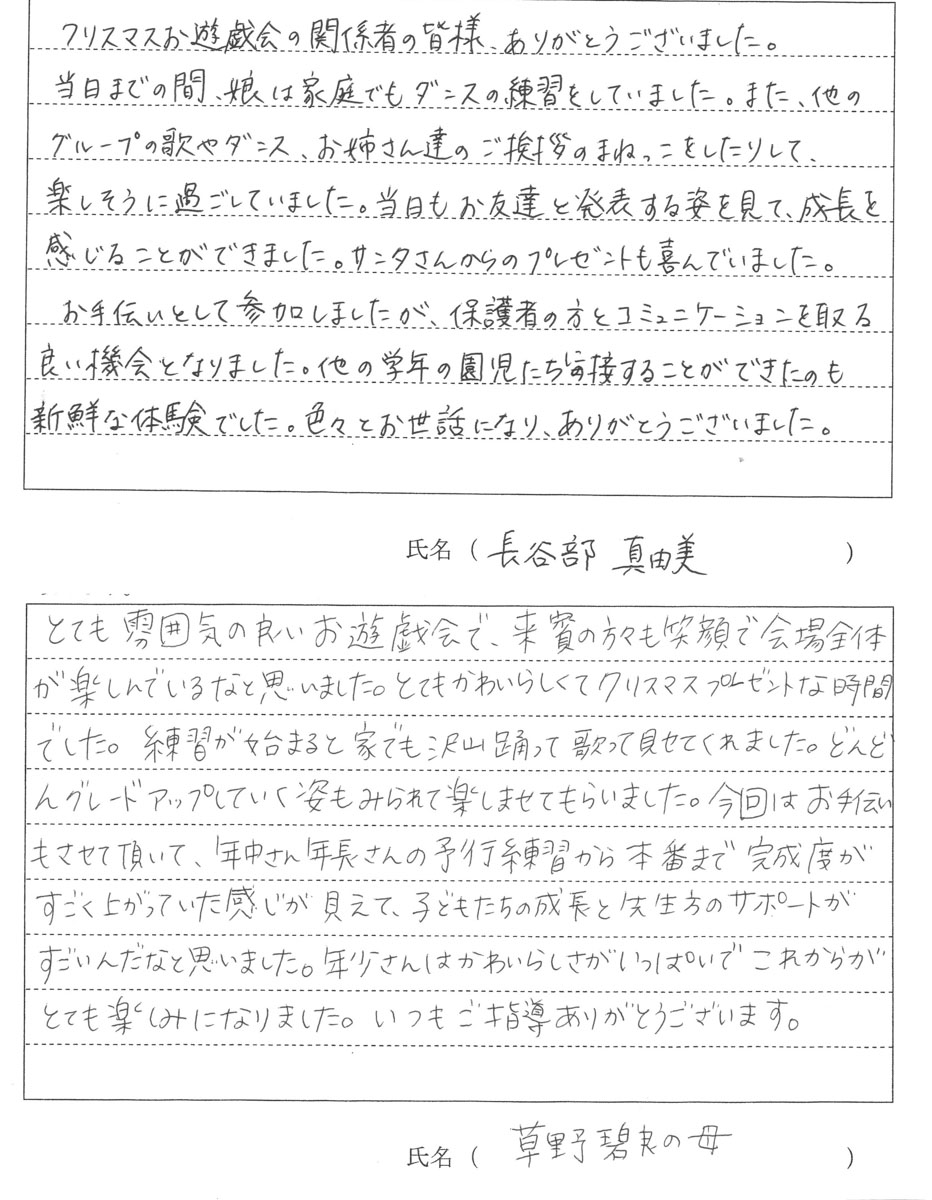 クリスマスお遊戯会の関係者の皆様、ありがとうございました。
当日までの間、娘は家庭でもダンスの練習をしていました。また、他の
グループの歌やダンス、お姉さん達のご挨拶のまねっこをしたりして、
楽しそうに過ごしていました。当日もお友達と発表する姿を見て、成長を
感じることができました。サンタさんからのプレゼントも喜んでいました。
お手伝いとして参加しましたが、保護者の方とコミュニケーションを取る
良い機会となりました。他の学年の園児たちと接することができたのも
新鮮な体験でした。色々とお世話になり、ありがとうございました。
氏名 ( 長谷部 真由美 )
とても雰囲気の良いお遊戯会で、来賓の方々も笑顔で会場全体
が楽しんでいるなと思いました。とてもかわいらしくてクリスマスプレゼントな時間
でした。練習が始まると家でも沢山踊って歌って見せてくれました。どんど
んグレードアップしていく姿もみられて楽しませてもらいました。今回はお手伝い
もさせて頂いて、年中さん年長さんの予行練習から本番まで完成度が
すごく上がっていた感じが見えて、子どもたちの成長と先生方のサポートが
すごいんだなと思いました。年少さんはかわいらしさがいっぱいでこれからが
とても楽しみになりました。いつもご指導ありがとうございます。
氏名 ( 草野碧良の母 )